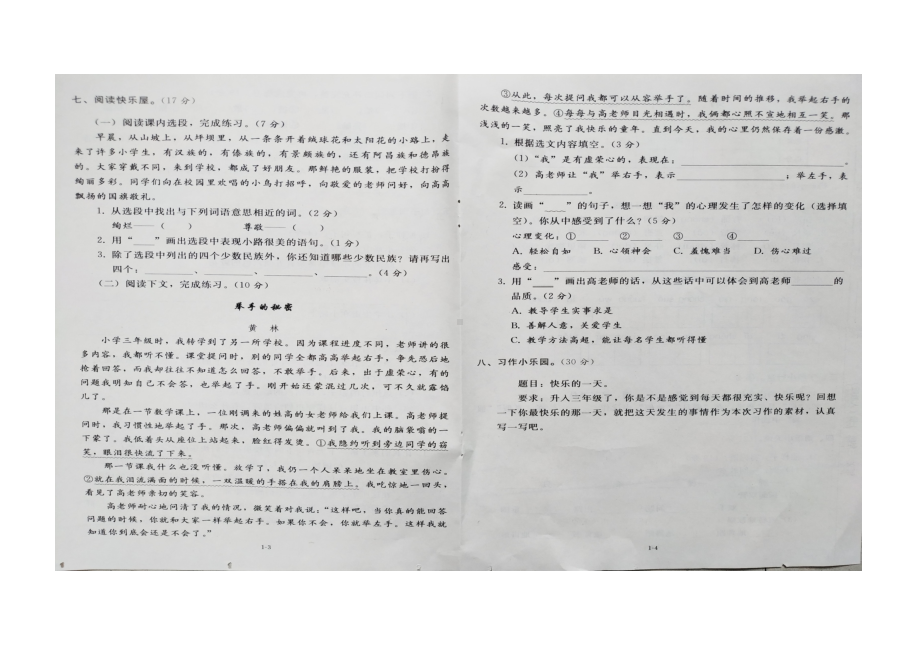 七、阅读快乐屋。(17 分)
(一) 阅读课内选段，完成练习。(7 分)
早晨，从山坡上，从坪坝里，从一条条开着绒球花和太阳花的小路上，走
来了许多小学生，有汉族的，有傣族的，有景颇族的，还有阿昌族和德昂族
的。大家穿戴不同，来到学校，都成了好朋友。那鲜艳的服装，把学校打扮得
绚丽多彩。同学们向在校园里欢唱的小鸟打招呼，向敬爱的老师问好，向高高
飘扬的国旗敬礼。
1. 从选段中找出与下列词语意思相近的词。(2 分)
绚烂——（　　） 尊敬——（　　）
2. 用“____”画出选段中表现小路很美的语句。(1 分)
3. 除了选段中列出的四个少数民族外，你还知道哪些少数民族？请再写出
四个：________、________、________、________。(4 分)
(二) 阅读下文，完成练习。(10 分)
举手的秘密
黄　林
小学三年级时，我转学到了另一所学校。因为课程进度不同，老师讲的很
多内容，我都听不懂。课堂提问时，别的同学全都高高举起右手，争先恐后地
抢着回答，而我却往往不知道怎么回答，不敢举手。后来，出于虚荣心，有的
问题我明知自己不会答，也举起了手。刚开始还蒙混过几次，可不久就露馅
儿了。
那是在一节数学课上，一位刚调来的姓高的女老师给我们上课。高老师提
问时，我习惯性地举起了手。那次，高老师偏偏就叫到了我。我的脑袋嗡的一
下蒙了。我低着头从座位上站起来，脸红得发烫。①我隐约听到旁边同学的窃
笑，眼泪很快流了下来。
那一节课我什么也没听懂。放学了，我仍一个人呆呆地坐在教室里伤心。
②就在我泪流满面的时候，一双温暖的手搭在我的肩膀上。我吃惊地一回头，
看见了高老师亲切的笑容。
高老师耐心地问清了我的情况，微笑着对我说：“这样吧，当你真的能回答
问题的时候，你就和大家一样举起右手。如果你不会，你就举左手。这样我就
知道你到底会还是不会了。”
1-3
③从此，每次提问我都可以从容举手了。随着时间的推移，我举起右手的
次数越来越多。④每每与高老师目光相遇时，我俩都心照不宣地相互一笑。那
浅浅的一笑，照亮了我快乐的童年。直到今天，我的心里仍然保存着一份感激。
1. 根据选文内容填空。(3 分)
(1)“我”是有虚荣心的，表现在：________________。
(2) 高老师让“我”举右手，表示________________；举左手，表
示________。
2. 读画“____”的句子，想一想“我”的心理发生了怎样的变化（选择填
空）。你从中感受到了什么？(5 分)
心理变化：①______ ②______ ③______ ④______
A. 轻松自如　B. 心领神会　C. 羞愧难当　D. 伤心难过
感受：________________________
3. 用“　　”画出高老师的话，从这些话中可以体会到高老师______的
品质。(2 分)
A. 教导学生实事求是
B. 善解人意，关爱学生
C. 教学方法高超，能让每名学生都听得懂
八、习作小乐园。(30 分)
题目：快乐的一天。
要求：升入三年级了，你是不是感觉到每天都很充实、快乐呢？回想
一下你最快乐的那一天，就把这天发生的事情作为本次习作的素材，认真
写一写吧。
1-4